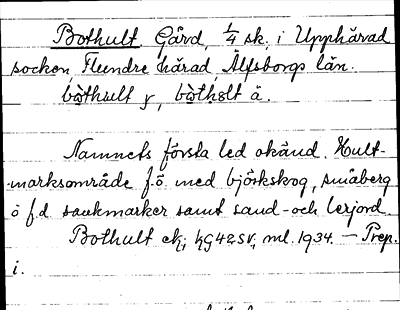 Bothult. Gård, 1/4 sk. i Upphärad
socken, Flundre härad, Älfsborgs län.
bòthult y, bòthølt ä.
Namnets första led okänd. Hult-
marksområde f.ö. med björkskog, småberg
o f.d. sankmarker samt sand- och lerjord.
Bothult ck, hg 42 SV, ml. 1934. — Prep.
i.